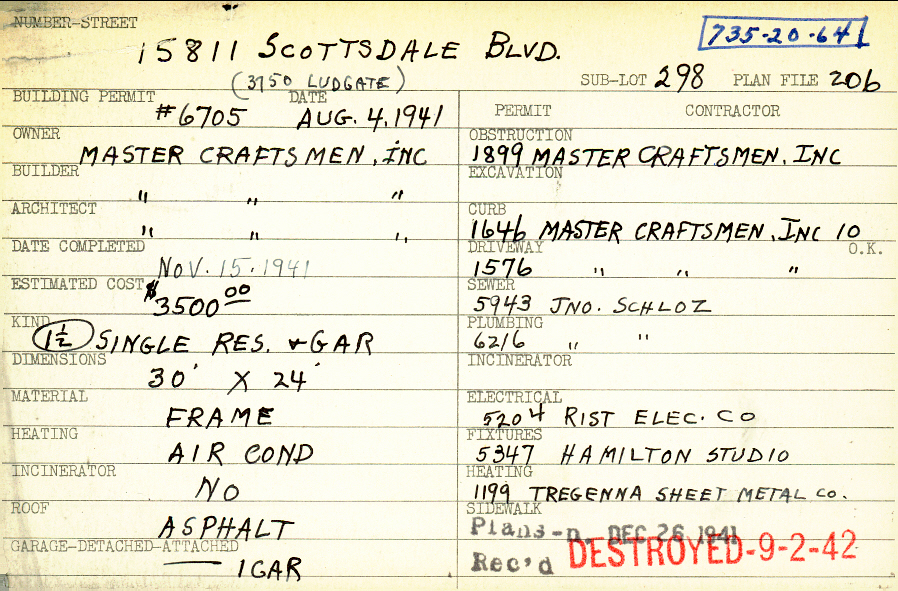 NUMBER-STREET
15811 SCOTTSDALE BLVD.
735-20-64
(3750 LUDGATE)
SUB-LOT 298 PLAN FILE 206
BUILDING PERMIT DATE
#6705 AUG. 4, 1941
PERMIT CONTRACTOR
OWNER
MASTER CRAFTSMEN, INC
OBSTRUCTION
1899 MASTER CRAFTSMEN, INC
BUILDER
" " "
EXCAVATION
ARCHITECT
" " "
CURB
1646 MASTER CRAFTSMEN, INC 10
DATE COMPLETED
NOV. 15. 1941
DRIVEWAY O.K.
1576 " " "
ESTIMATED COST
$3500.00
SEWER
5943 JNO. SCHLOZ
KIND
1½ SINGLE RES. & GAR
PLUMBING
6216 " "
DIMENSIONS
30' X 24'
INCINERATOR
MATERIAL
FRAME
ELECTRICAL
5204 RIST ELEC. CO
HEATING
AIR COND
FIXTURES
5347 HAMILTON STUDIO
INCINERATOR
NO
HEATING
1199 TREGENNA SHEET METAL CO.
ROOF
ASPHALT
SIDEWALK
Plans-n. DEC 26 1941
GARAGE-DETACHED-ATTACHED
1 GAR
Rec'd DESTROYED-9-2-42